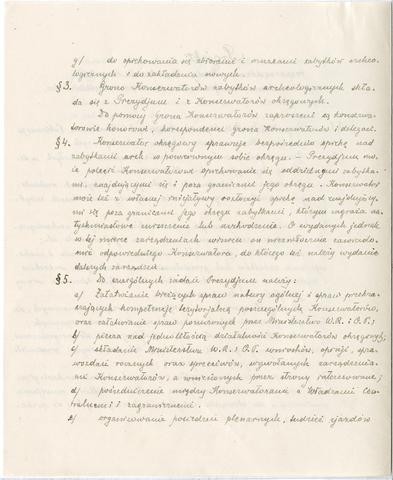 g/ do opiekowania się zbiorami i muzeami zabytków archeo-
logicznych i do zakładania nowych.
§ 3. Grono Konserwatorów zabytków archeologicznych skła-
da się z Prezydjum i z Konserwatorów okręgowych.
Do pomocy Grona Konserwatorów zaproszeni są konserwa-
torowie honorowi, korespondenci Grona Konserwatorów i delegaci.
§ 4. Konserwator okręgowy sprawuje bezpośrednio opiekę nad
zabytkami arch. w powierzonym sobie okręgu. - Prezydjum mo-
że polecić Konserwatorowi opiekowanie się oddzielnymi zabytka-
mi, znajdującymi się i poza granicami jego okręgu. Konserwator
może też z własnej inicjatywy roztoczyć opiekę nad znajdujący-
mi się poza granicami jego okręgu zabytkami, którym zagraża na-
tychmiastowe zniszczenie lub uszkodzenie. O wydanych jednak
w tej mierze zarządzeniach winien on niezwłocznie zawiado-
mić odpowiedniego Konserwatora, do którego też należy wydanie
dalszych zarządzeń.
§ 5. Do szczególnych zadań Prezydjum należy:
a) Załatwianie bieżących spraw natury ogólnej i spraw przekra-
czających kompetencję terytorjalną poszczególnych Konserwatorów,
oraz załatwianie spraw poruczonych przez Ministerstwo W.R. i O.P.;
b) piecza nad jednolitością działalności Konserwatorów okręgowych;
c) składanie Ministerstwu W.R. i O.P. wniosków, opinji, spra-
wozdań rocznych oraz sprzeciwów, wywołanych zarządzenia-
mi Konserwatorów, a wnoszonych przez strony interesowane;
d) pośredniczenie między Konserwatorami a Władzami Cen-
tralnemi i zagranicznemi.
e) organizowanie posiedzeń plenarnych, tudzież zjazdów